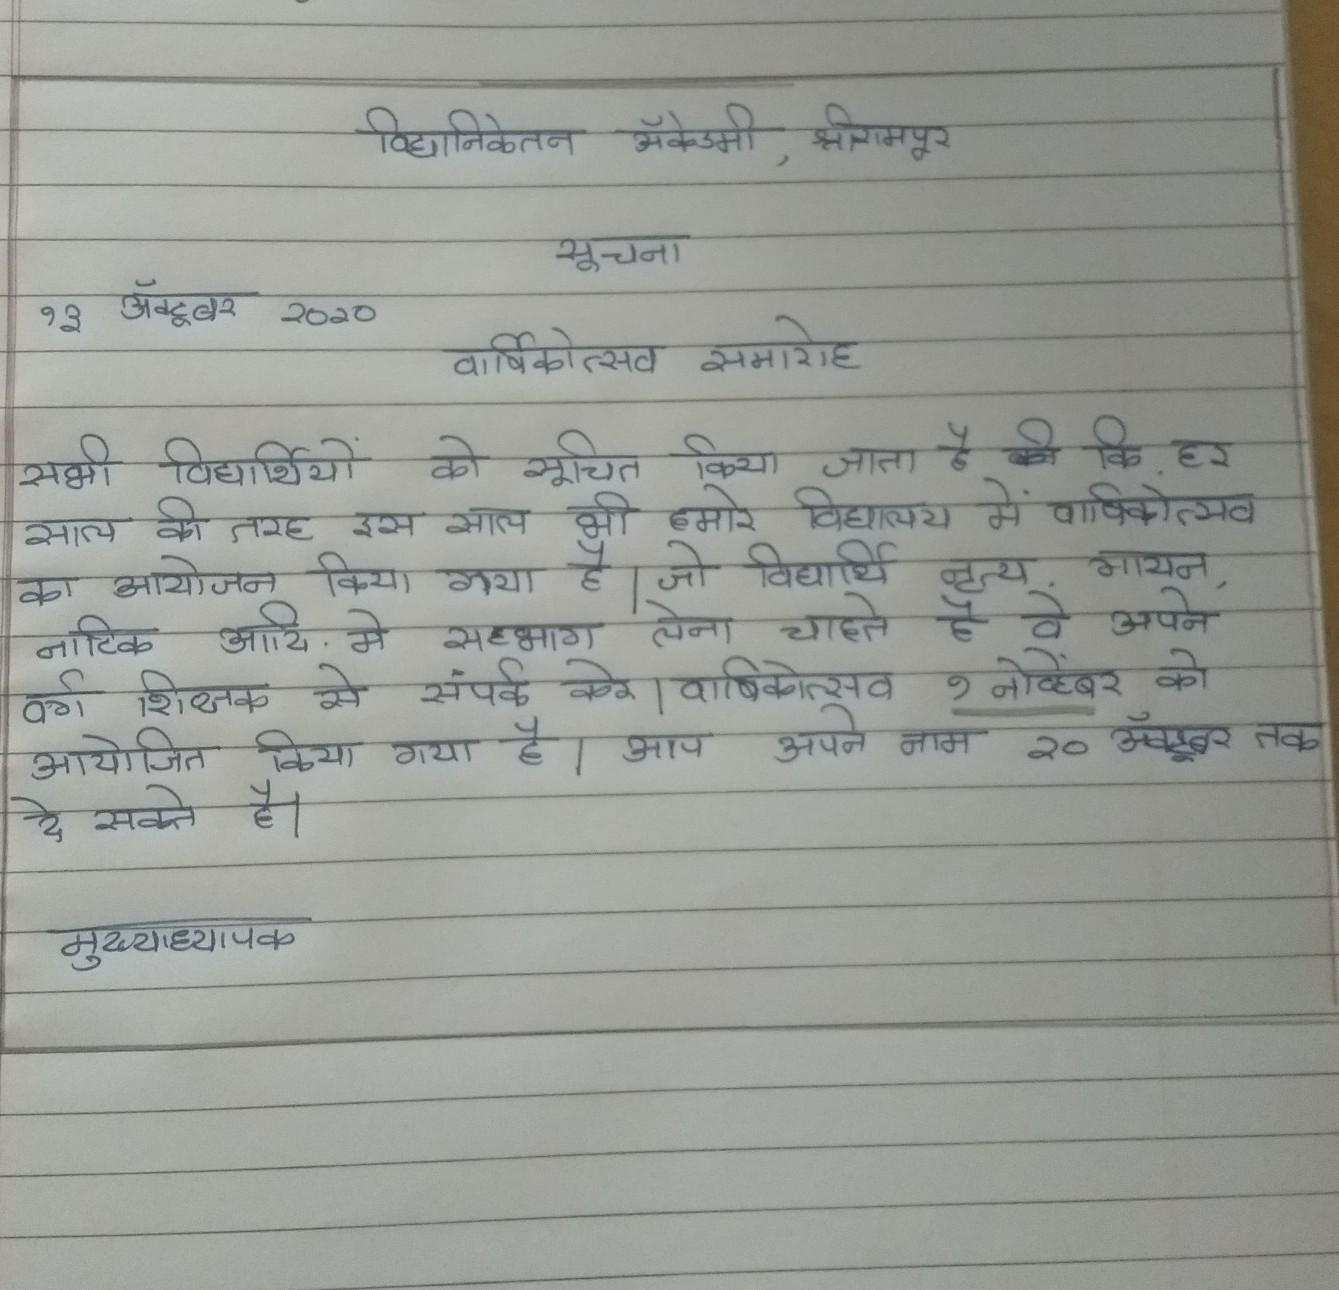 विद्यानिकेतन ॲकेडमी, श्रीरामपूर
सूचना
१३ ॲक्टूबर २०२०
वार्षिकोत्सव समारोह
सभी विद्यार्थियों को सूचित किया जाता है की कि हर
साल की तरह इस साल भी हमारे विद्यालय में वार्षिकोत्सव
का आयोजन किया गया है। जो विद्यार्थि नृत्य, गायन,
नाटिक आदि. मे सहभाग लेना चाहते है वे अपने
वर्ग शिक्षक से संपर्क करे। वार्षिकोत्सव १ नोव्हेंबर को
आयोजित किया गया है। आप अपने नाम २० ॲक्टूबर तक
दे सकते है।
मुख्याध्यापक